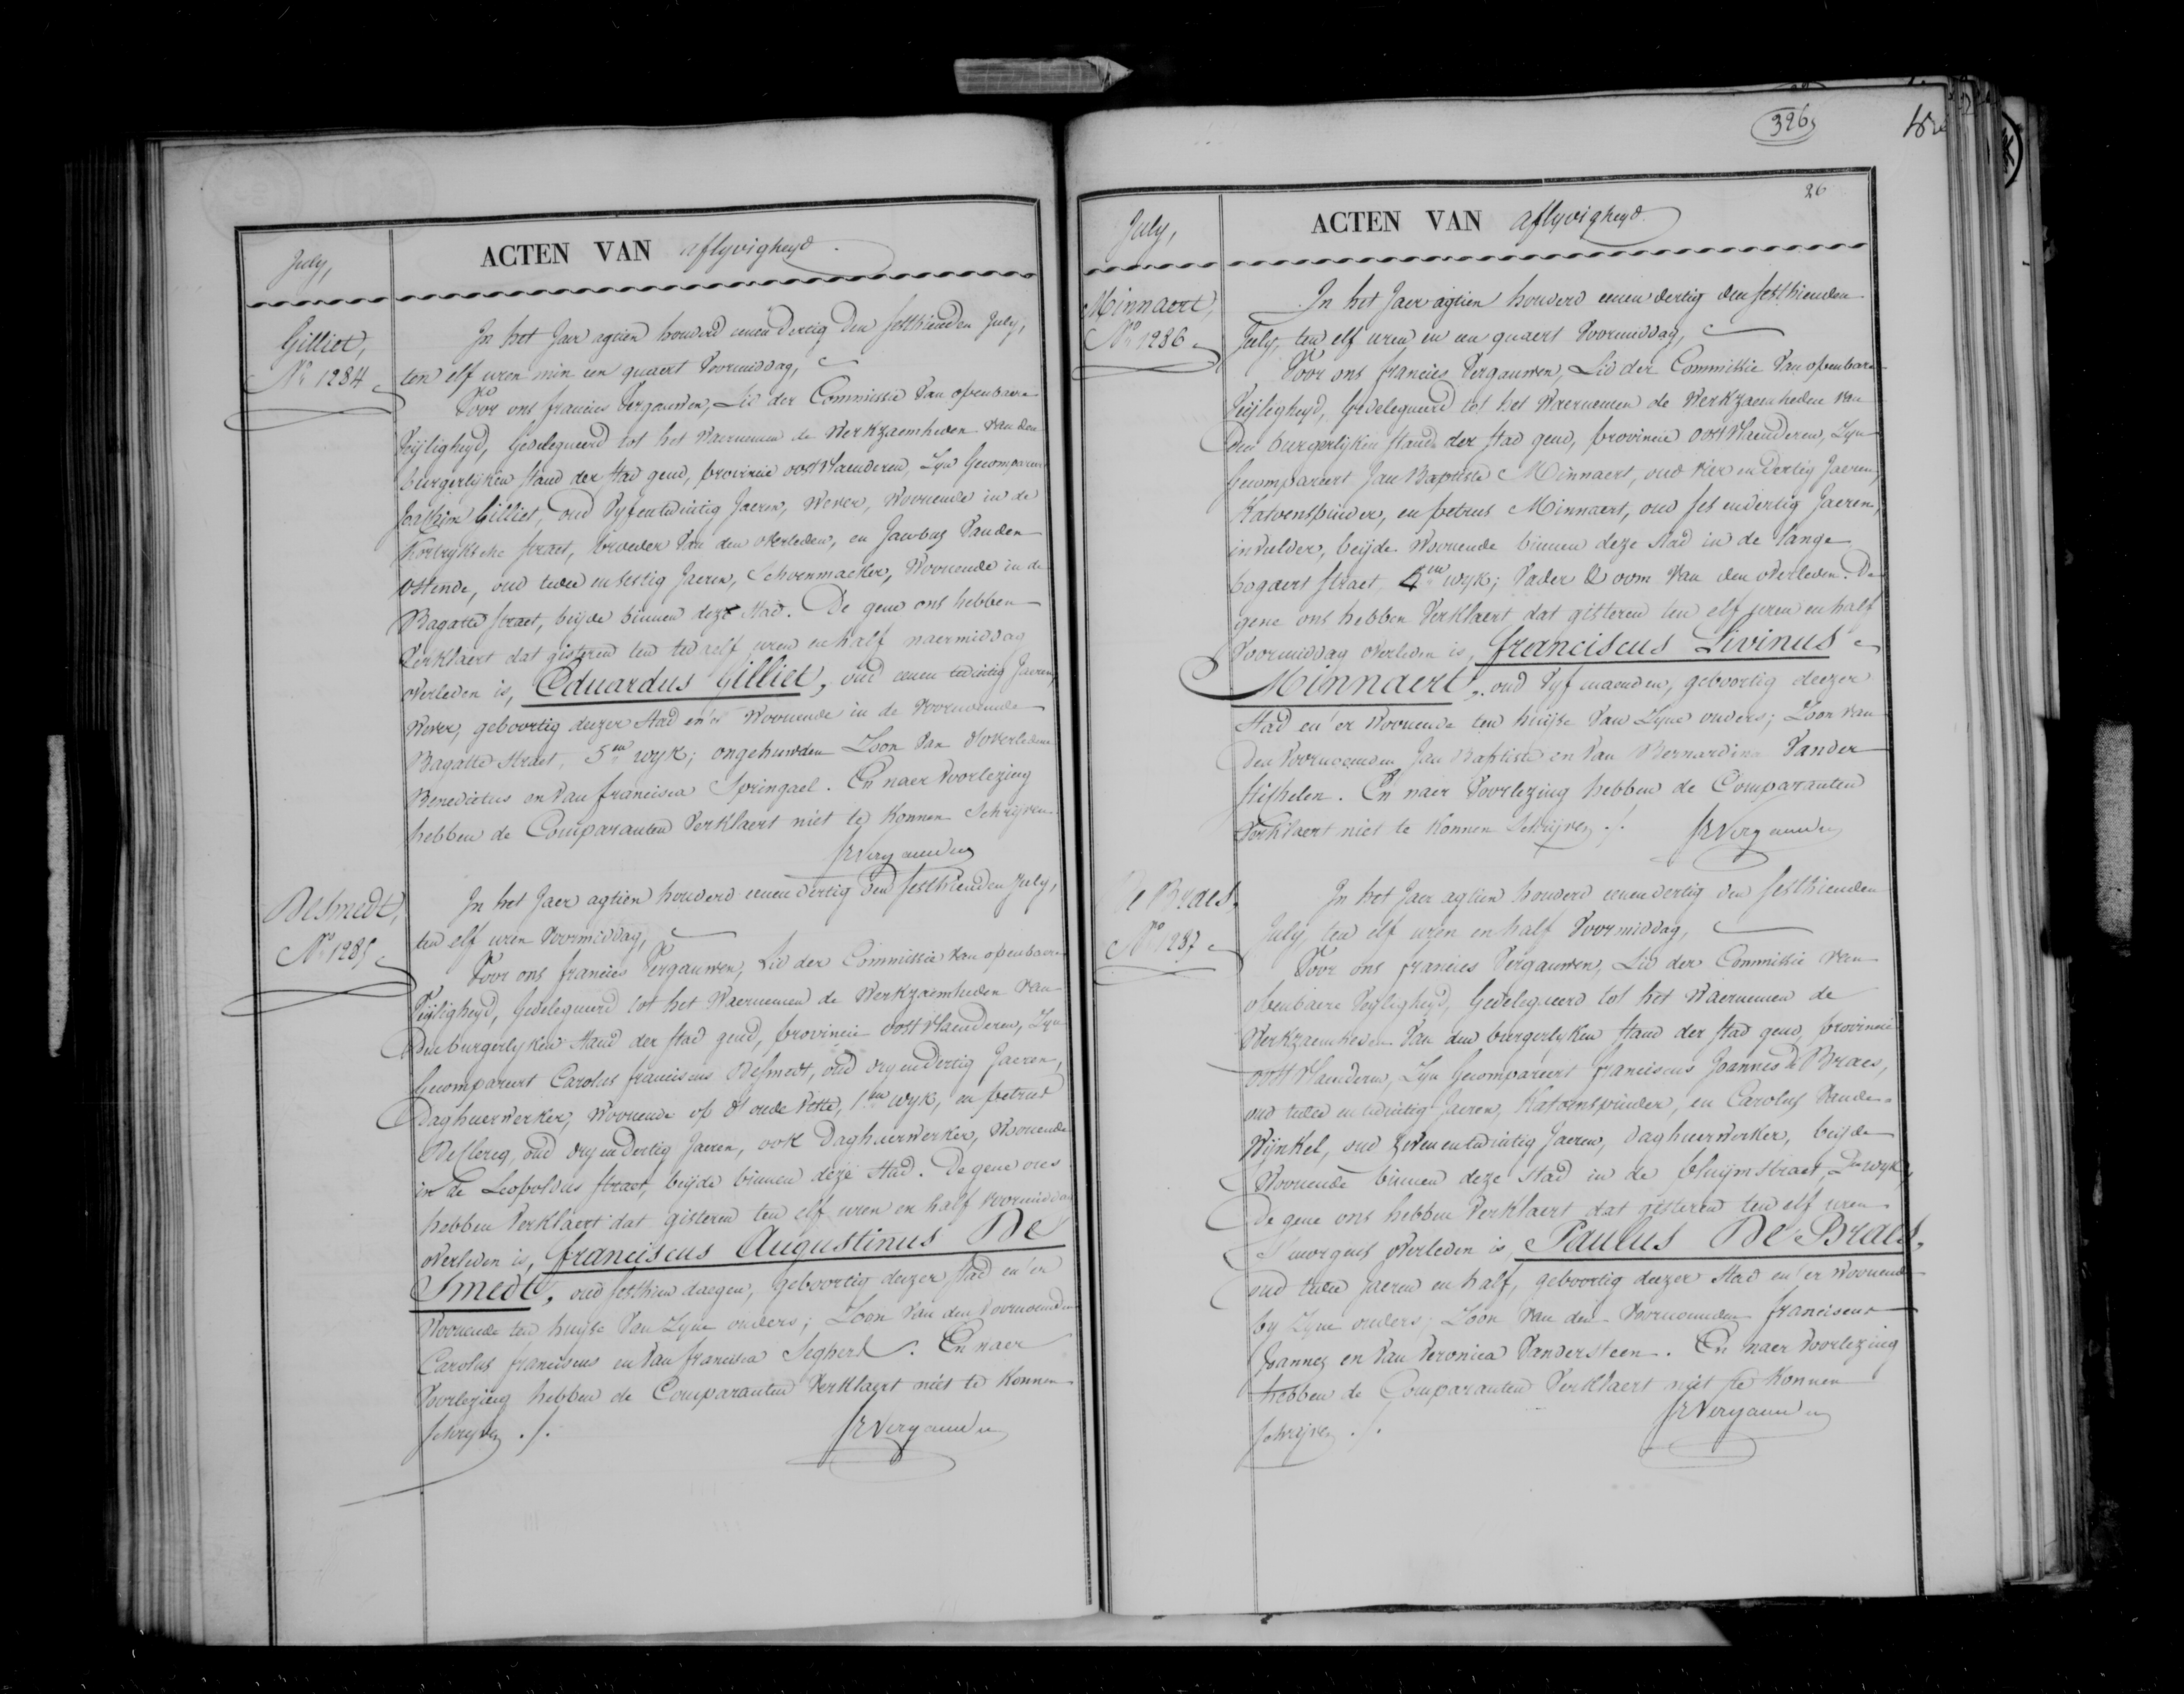 July,
ACTEN VAN aflyvigheyd.
Gilliet,
N° 1284
In het Jaer agtien honderd eenen dertig den sesthienden July,
ten elf uren min een quaert Voormiddag,
Voor ons francies Vergauwen, Lid der Commissie Van openbaere
Vyligheyd, Gedelegueerd tot het Waernemen de Werkzaemheden van den
burgerlyken stand der stad gend, provincie oostvlaenderen, Zyn Gecompareert
Joachim Gilliet, oud Vyfentwintig Jaeren, Wever, Woonende in de
Kortryksche straet, broeder Van den overleden, en Jacobus Vanden
Ostende, oud twee en sestig Jaeren, Schoenmaeker, Woonende in de
Bagatte straet, beyde binnen deze stad. De gene ons hebben
Verklaert dat gisteren ten twaelf uren en half naermiddag
overleden is, Eduardus Gilliet, oud eenen twintig Jaeren,
Wever, geboortig deezer stad en er Woonende in de Voornoemde
Bagatte straet, 5en wyk; ongehuwden Zoon Van d'overledene
Benedictus en Van francisca Springael. En naer Voorlezing
hebben de Comparanten Verklaert niet te konnen Schryven
frVergauwen
DeSmedt,
N° 1285
In het Jaer agtien honderd eenen dertig den sesthienden July,
ten elf uren Voormiddag,
Voor ons francies Vergauwen, Lid der Commissie van openbaere
Vyligheyd, Gedelegueerd tot het Waernemen de Werkzaemheden van
den burgerlyken stand der stad gend, provincie oostvlaenderen, Zyn
Gecompareert Carolus franciscus DeSmedt, oud dryendertig Jaeren,
Daghuerwerker, Woonende op d'oude Vette, 1en wyk, en petrus
DeClercq, oud dryendertig Jaeren, ook Daghuerwerker, Woonende
in de Leopoldus straet, beyde binnen deze stad. De gene ons
hebben Verklaert dat gisteren ten elf uren en half voormiddag
overleden is, franciscus Augustinus De
Smedt, oud sesthien daegen, geboortig deezer stad en er
Woonende ten huyse Van Zyne ouders; Zoon Van den Voornoemden
Carolus franciscus en Van francisca Seghers. En naer
Voorlezing hebben de Comparanten Verklaert niet te konnen
schryven ./.
frVergauwen
326
26
July,
ACTEN VAN aflyvigheyd
Minnaert,
N° 1286
In het Jaer agtien honderd eenen dertig den sesthienden
July, ten elf uren en een quaert Voormiddag,
Voor ons francies Vergauwen, Lid der Commissie Van openbaere
Vyligheyd, Gedelegueerd tot het Waernemen de Werkzaemheden van
den burgerlyken stand der stad gend, provincie oostvlaenderen, Zyn
Gecompareert Jan Baptiste Minnaert, oud vier en dertig Jaeren,
Katoenspinder, en petrus Minnaert, oud ses endertig Jaeren,
invulder, beyde Woonende binnen deze stad in de lange
bogaert straet, 4en wyk; Vader & oom Van den overleden. De
gene ons hebben Verklaert dat gisteren ten elf uren en half
Voormiddag overleden is, franciscus Livinus
Minnaert, oud Vyf maenden, geboortig deezer
stad en er Woonende ten huyse Van Zyne ouders; Zoon van
den Voornoemden Jan Baptiste en Van Bernardina Vander
stichelen. En naer Voorlezing hebben de Comparanten
Verklaert niet te konnen Schryven ./.
frVergauwen
De Braes,
N° 1287
In het Jaer agtien honderd eenendertig den sesthienden
July, ten elf uren en half Voormiddag,
Voor ons francies Vergauwen, Lid der Commissie van
openbaere Vyligheyd, Gedelegueerd tot het Waernemen de
Werkzaemheden Van den burgerlyken stand der stad gend, provincie
oostvlaenderen, Zyn Gecompareert franciscus Joannes de Braes,
oud twee en twintig Jaeren, Katoenspinder, en Carolus Vande
Wynkel, oud Zevenentwintig Jaeren, daghuerwerker, beyde
Woonende binnen deze stad in de pluymstraet, 2en wyk,
De gene ons hebben Verklaert dat gisteren ten elf uren
S'morgens overleden is, Paulus De Braes,
oud twee Jaeren en half, geboortig deezer stad en er Woonende
by Zyne ouders; Zoon Van den Voornoemden franciscus
Joannes en Van Veronica Vandersteen. En naer Voorlezing
hebben de Comparanten Verklaert niet te konnen
schryven ./.
frVergauwen